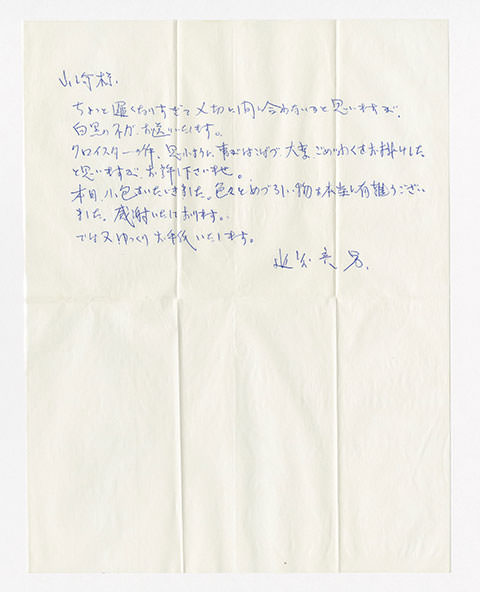 山崎様.
ちょっと遅くなりすぎて〆切に間に合わないかと思いますが、
白黒のネガ、お送りいたします。
クロイスターの件、思ふように事がはこばず、大変ごめいわくをお掛けした
と思いますが、お許し下さいませ。
本日、小包をいただきました。色々とめづらしい物を本当に有難うござい
ました。感謝いたしております。
では又ゆっくりお手紙いたします。